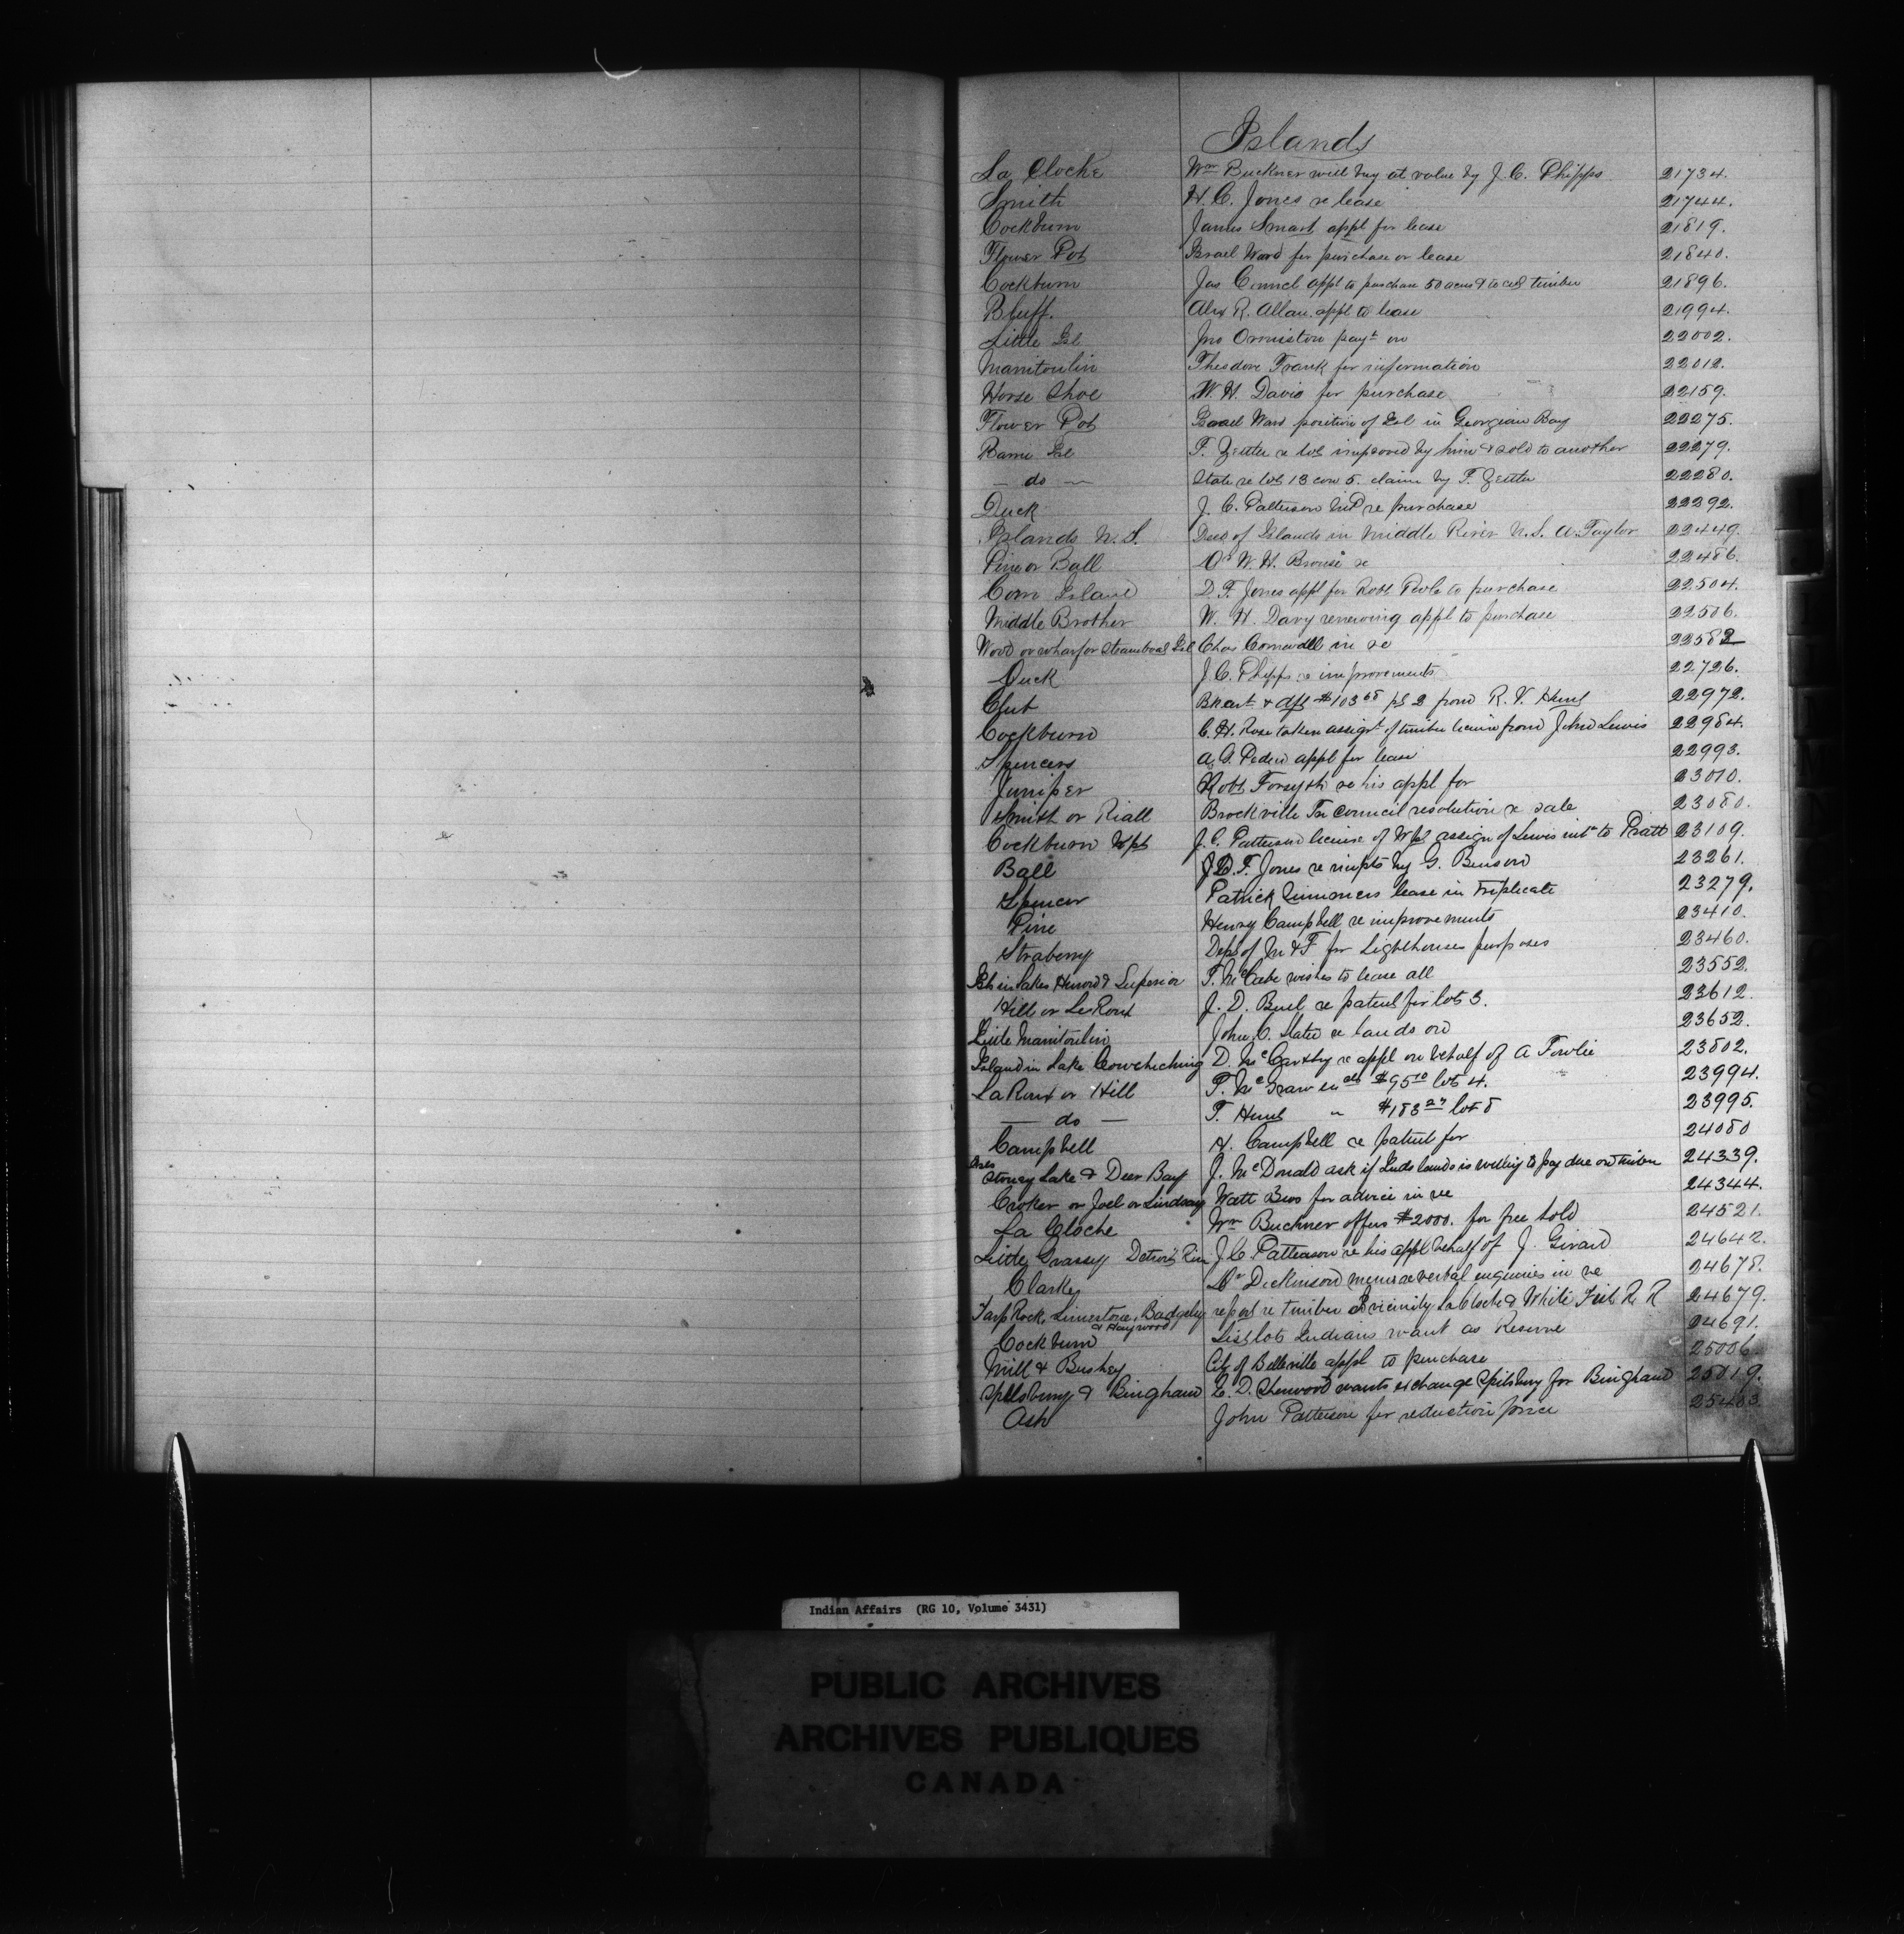 Islands
La Cloche Wm Buckner will buy at value by J. C. Phipps 21734.
Smith H. C. Jones re lease 21744.
Cockburn James Smart appl for lease 21819.
Flower Pot Israel Ward for purchase or lease 21840.
Cockburn Jas appl to purchase 50 acres & to cut timber 21896.
Bluff. Alex R. Allan appl to lease 21994.
Little Isl Jno Ormiston payt on 22002.
Manitoulin Theodore Frank for information 22012.
Horse Shoe W. H. Davis for purchase 22159.
Flower Pot Israel Ward position of Isl in Georgian Bay 22275.
Barrie Isl F. Zettler re lot improved by him & sold to another 22279.
— do — State re lot 13 con 5. claim by F. Zettler 22280.
Duck J. C. Patterson M.P. re purchase 22292.
Islands N. S. of Islands in Middle River N. S. A. Taylor 22449.
Pine or Ball Dr W. H. re 22486.
Corn Island D. F. Jones appl for Robt to purchase 22504.
Middle Brother W. H. Davy renewing appl to purchase 22506.
Wood or wharf or Steamboat Isl Chas Cornwall in re 22582
Duck J. C. Phipps re improvements 22726.
Club & dft $103 68 pt 2 from R. V. 22972.
Cockburn C. H. Rose taken assignt of timber licence from John Lewis 22984.
Spencers A. G. Peden appl for lease 22993.
Juniper Robt Forsyth re his appl for 23010.
Smith or Riall Brockville Tn Council resolution re sale 23080.
Cockburn Wpt J. C. Patterson licence of Wpt assign of Lewis int to Pratt 23109.
Ball D. F. Jones re impts by G. Benson 23261.
Spencer Patrick Simmons lease in Triplicate 23279.
Pine Henry Campbell re improvements 23410.
Straberry Dept of M & F for Lighthouse purposes 23460.
Isls in Lakes Huron & Superior T. McCabe wishes to lease all 23552.
Hill or LeRoux J. D. Buel re patent for lot 3. 23612.
Little Manitoulin John C. Slater re lands on 23652.
Island in Lake Couchiching D. McCarthy re appl on behalf of A Fowlie 23802.
LaRoux or Hill P. McGraw $95 10 lot 4. 23994.
— do — T. Hunt " $183 27 lot 8 23995.
Campbell H. Campbell re patent for 24080
Isles
Stoney Lake & Deer Bay J. McDonald ask if Inds lands is willing to pay due on timber 24339.
Croker or Joel or Lindsay Watt Bros for advice in re 24344.
La Cloche Wm Buckner offers $2000. for free hold 24521.
Little Grassy Detroit Riv J. C. Patterson re his appl behalf of J. Girard 24642.
Clarke Mr Dickinson memo re verbal enquiries in re 24678.
Rock, Limestone, Badgeley report re timber vicinity LaCloche & White Fish R R 24679.
& Haywood
Cockburn List lots Indians want as Reserve 24691.
Mill & Bushey City of Belleville appl to purchase 25006.
Spilsbury & Bingham E. D. Sherwood wants exchange Spilsbury for Bingham 25019.
Ash John Patterson for reduction price 25403.
Indian Affairs (RG 10, Volume 3431)
PUBLIC ARCHIVES
ARCHIVES PUBLIQUES
CANADA